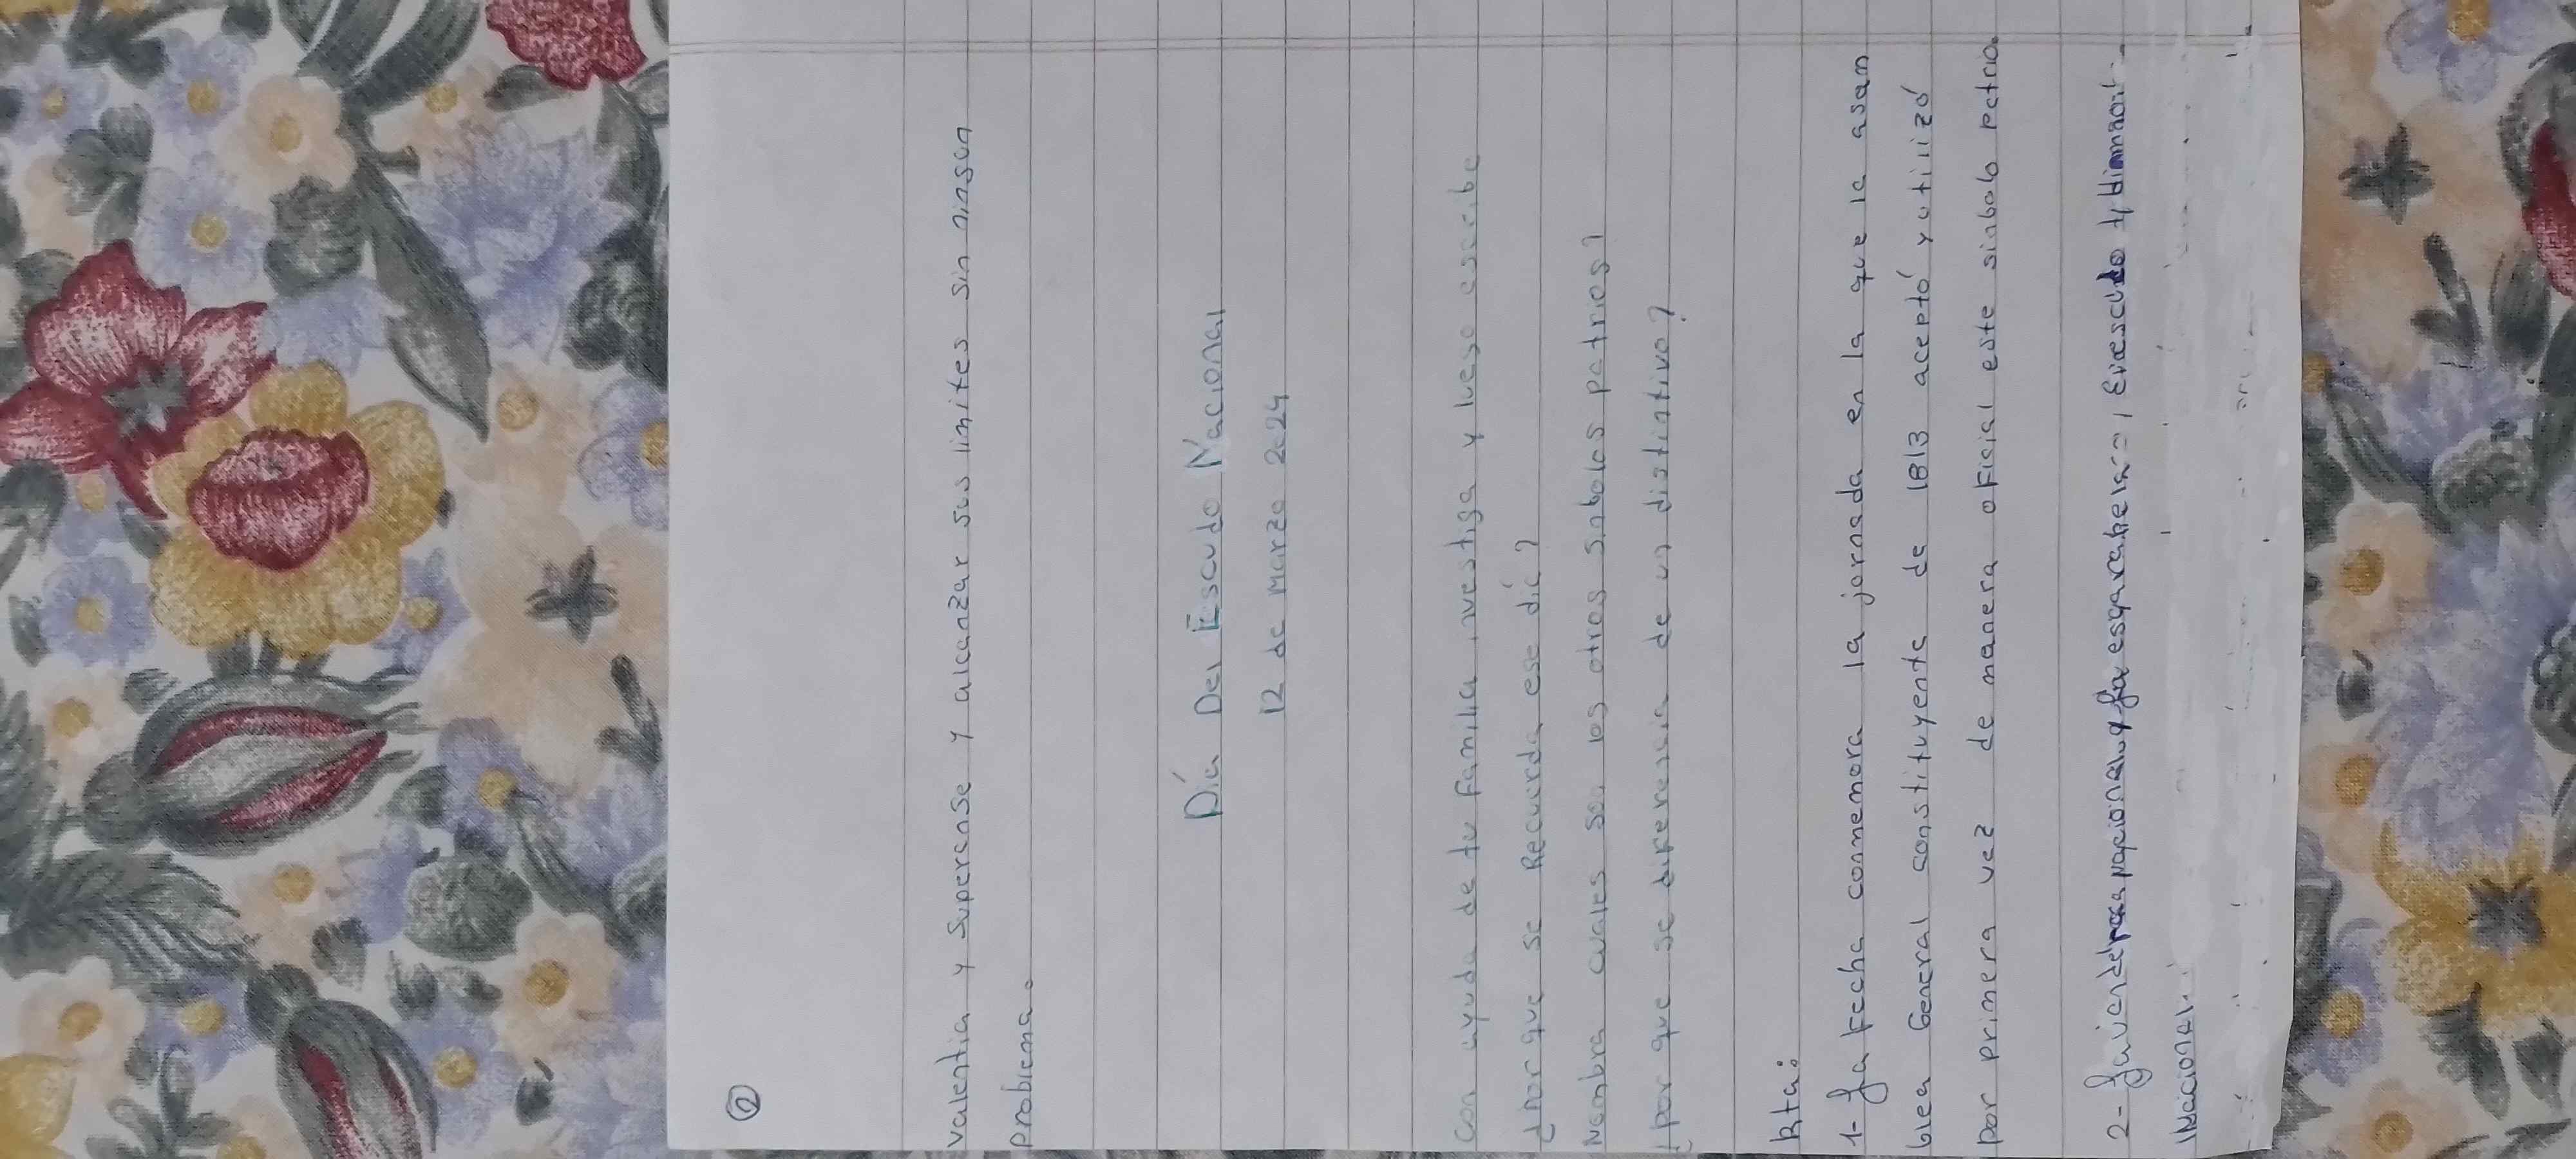 ②
valentia y superense y alcanzar sus limites sin ningun
problema.
Día Del Escudo Nacional
12 de marzo 2024
Con ayuda de tu familia investiga y luego escribe
¿Por que se Recuerda ese día?
Nombra cuales son los otros simbolos patrios?
¿por que se diferencia de un distintivo?
Rta:
1- La fecha conmemora la jornada en la que la asam
blea General constituyente de 1813 aceptó y utilizó
por primera vez de manera oficial este simbolo patrio.
2- La escarapela, El escudo y
Nacional.